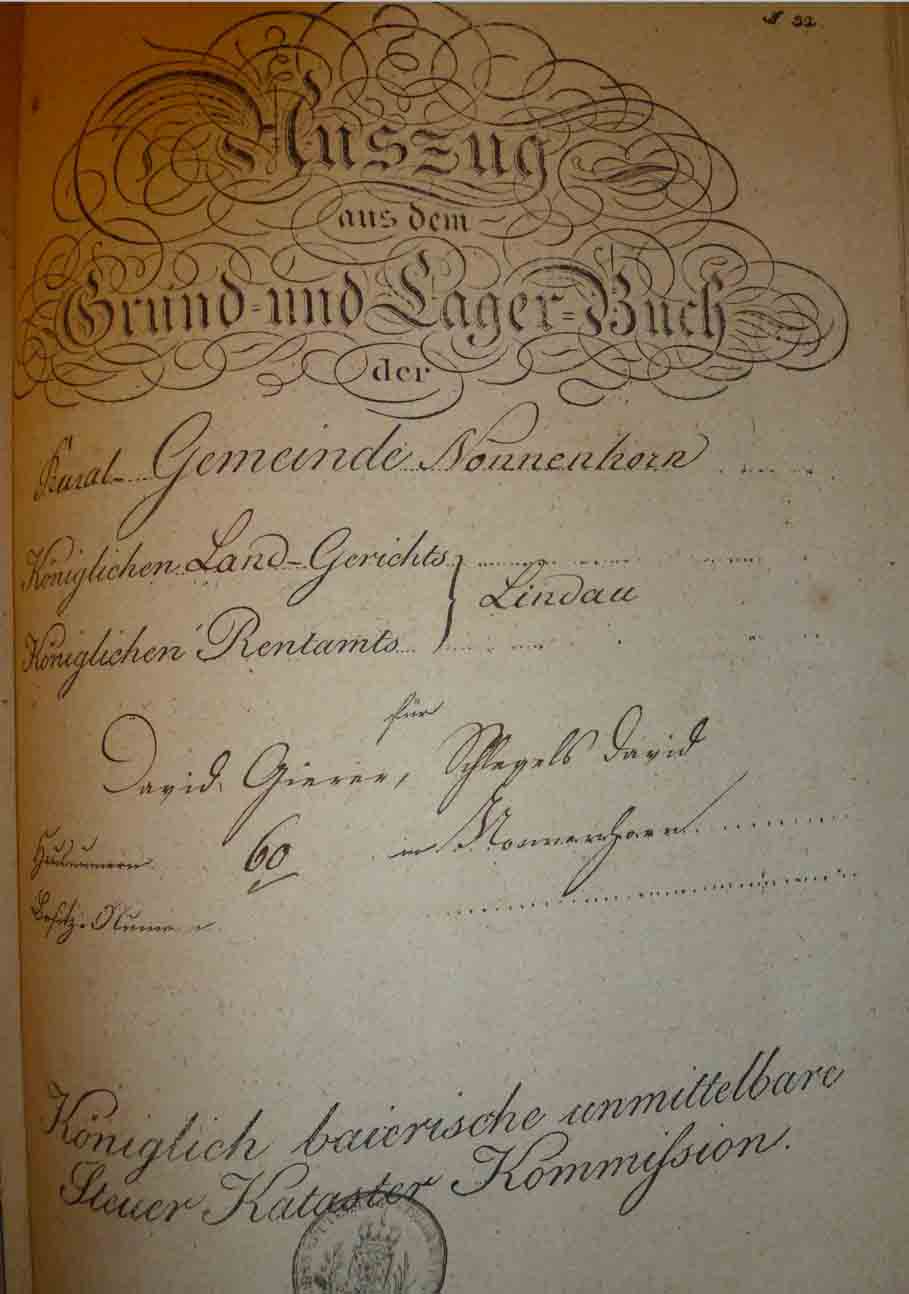 N 32.
Auszug
aus dem
Grund- und Lager-Buch
der
Rural- Gemeinde Nonnenhorn
Königlichen Land-Gerichts
Lindau
Königlichen Rentamts
für
David Gierer, Schlegels David
Hausnumern 60 in Nonnenhorn
Besitz-Nume
Königlich baierische unmittelbare
Steuer Kataster Kommißion.